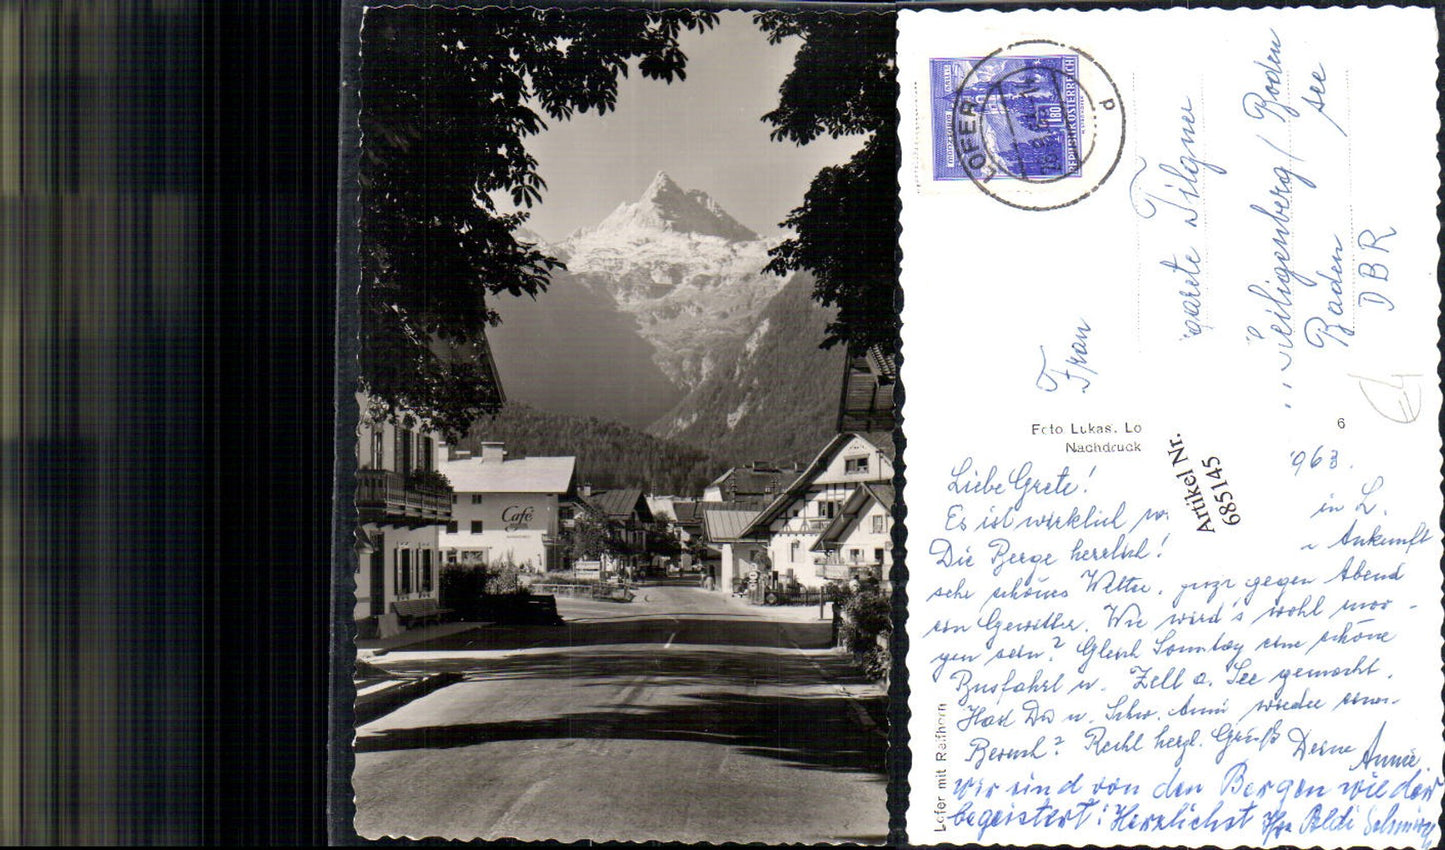 Café
LOFER
1.80
REPUBLIK ÖSTERREICH
Frau
Tilgner
Heiligenberg / Boden
see
Baden
DBR
Foto Lukas, Lo
Nachdruck
6
Artikel Nr.
685145
Lofer mit Reifhorn
963.
Liebe Grete!
Es ist wirklich in L.
Die Berge herrlich! Ankunft
sehr schönes Wetter, jetzt gegen Abend
ein Gewitter. Wie wird's wohl mor-
gen sein? Gleich Sonntag eine schöne
Busfahrt n. Zell a. See gemacht.
Hast Du v. Schw. Anni wieder
Besuch? Recht herzl. Grüße Deine Annie
Wir sind von den Bergen wieder
begeistert! Herzlichst Ihre Poldi